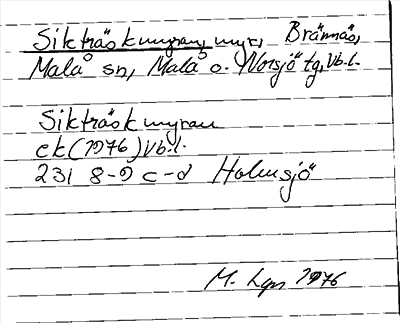 Sikträskmyran, myr, Brännäs,
Malå sn, Malå o. Norsjö tg, Vb.l.
Sikträskmyran
ek (1976) Vb.l.
231 8-9 c-d Holmsjö
M. 1976